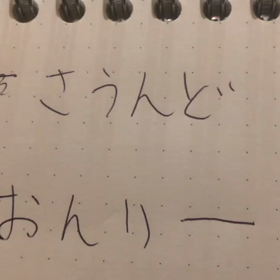 さうんど
おんりー